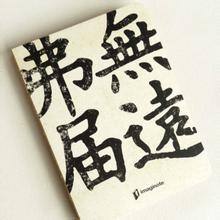 無遠
弗届
imaginote